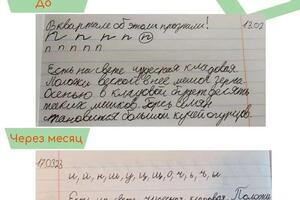 До
В квартале об этом прознали! 13.02
п п п п п
п п п п п
Есть на свете чудесная кладовая.
Положи весной в неё мешок зерна
Осенью в кладовой будет десять
таких мешков. Горсть семян
становится большой кучей огурцов.
Через месяц
и, й, н, ш, у, ц, щ, О, ч, ь, ч, ы
Есть на свете чудесная кладовая. Положи